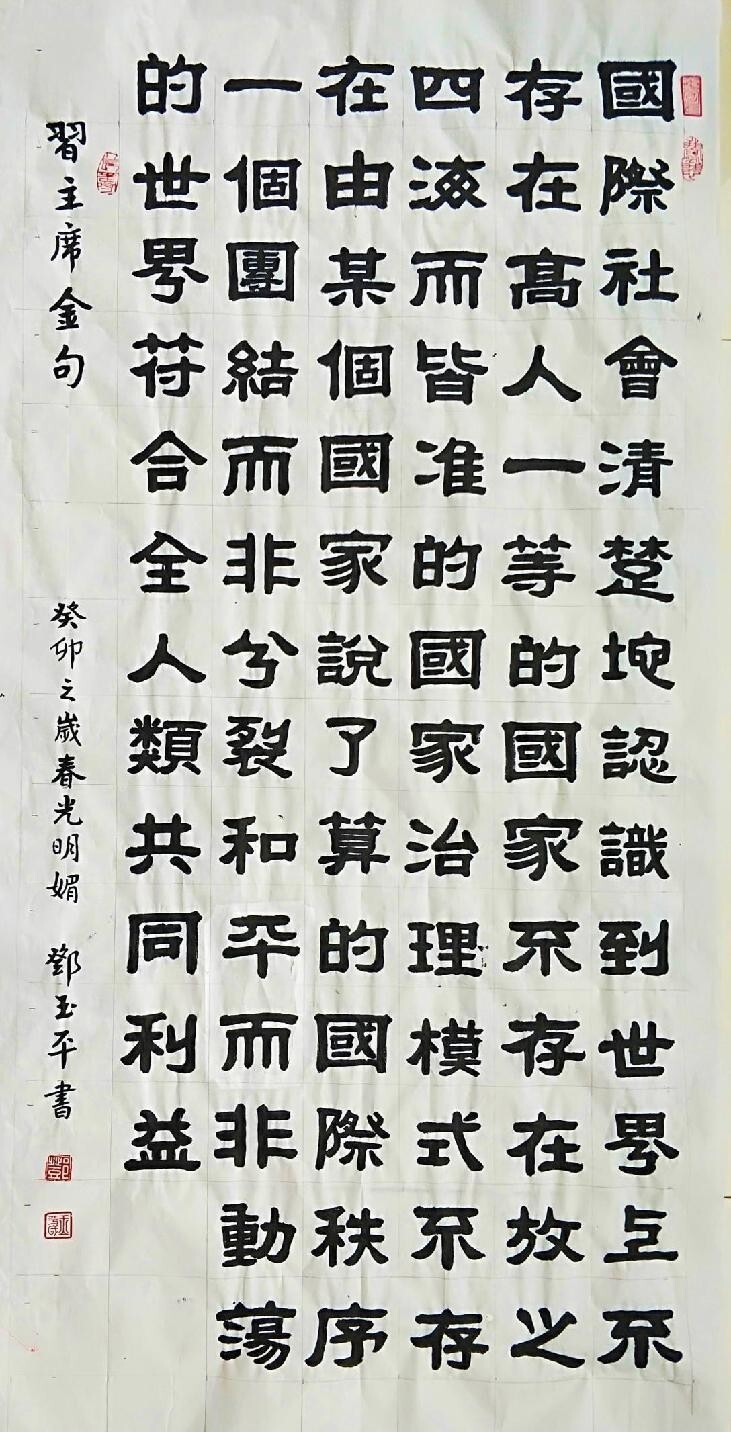 國際社會清楚地認識到世界上不
存在高人一等的國家不存在放之
四海而皆准的國家治理模式不存
在由某個國家說了算的國際秩序
一個團結而非分裂和平而非動蕩
的世界符合全人類共同利益
習主席金句
癸卯之歲春光明媚 鄧玉平書